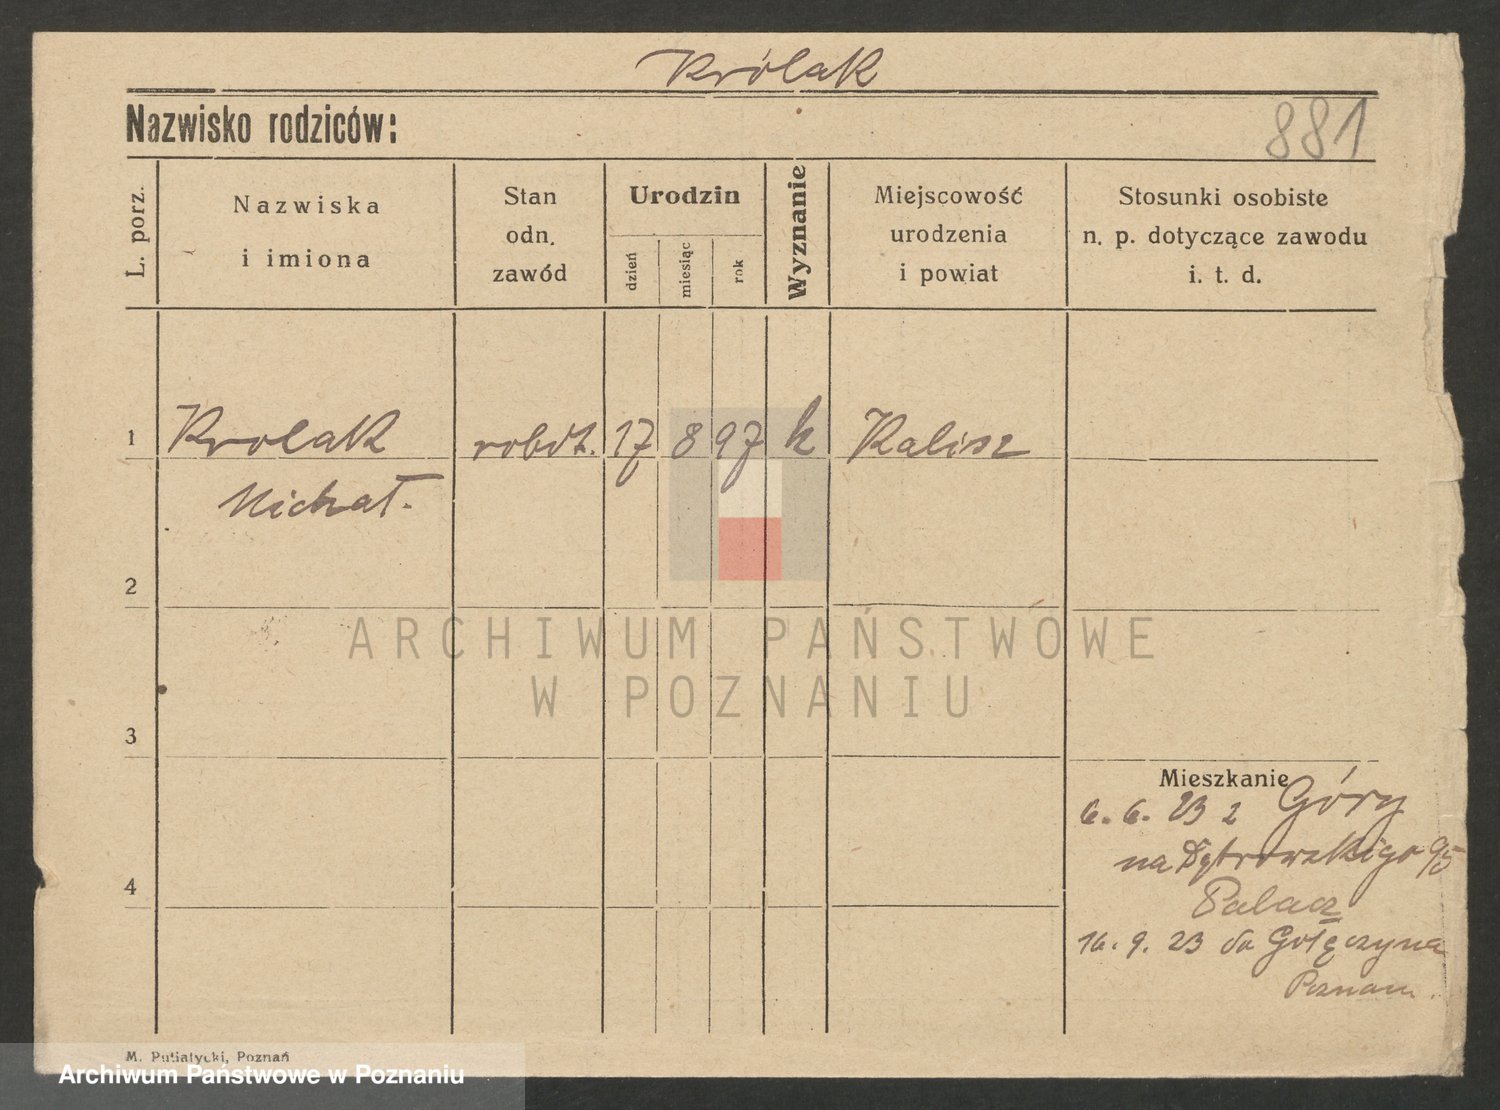 Królak
Nazwisko rodziców:
881
L. porz.
Nazwiska
i imiona
Stan
odn.
zawód
Urodzin
dzień
miesiąc
rok
Wyznanie
Miejscowość
urodzenia
i powiat
Stosunki osobiste
n. p. dotyczące zawodu
i. t. d.
1
Krolak
robot.
17
8
97
k
Kalisz
Michał.
2
ARCHIWUM PAŃSTWOWE
W POZNANIU
3
Mieszkanie
6. 6. 23 z Góry
na Dąbrowskiego 95
4
Palacz
16. 9. 23 do Gołęczyna
Poznań.
M. Putiatycki, Poznań
Archiwum Państwowe w Poznaniu